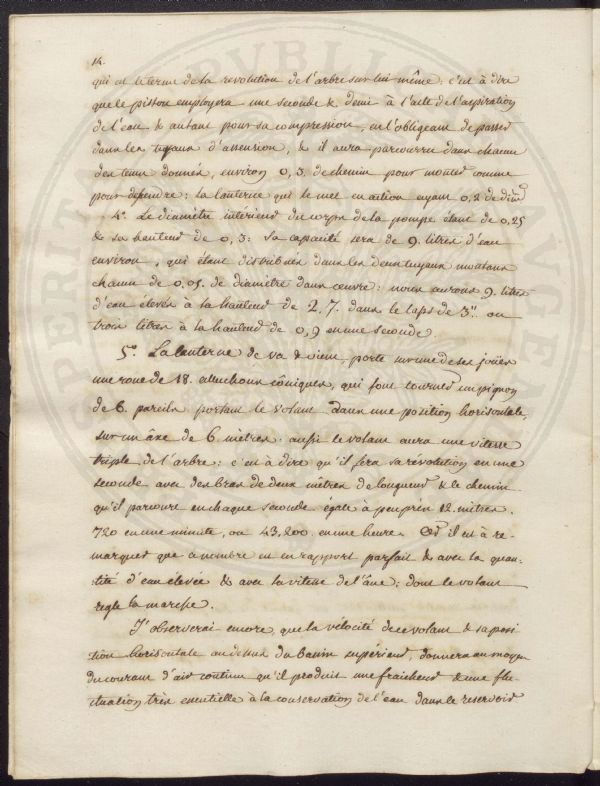 14.
qui est le terme de la revolution de l'arbre sur lui-même; c'est à dire
que le piston employera une seconde & demi à l'acte de l'aspiration
de l'eau & autant pour sa compression, en l'obligeant de passer
dans les tuyaux d'ascension, & il aura parcourru dans chacun
des tems donnés, environ 0,3. de chemin pour monter comme
pour descendre; la lanterne qui le met en action ayant 0,2 de diam.
4.° Le diamètre interieur du corps de la pompe étant de 0,25
& sa hauteur de 0,3: sa capacité sera de 9. litres d'eau
environ, qui étant distribués dans les deux tuyaux montans
chacun de 0,05. de diamètre dans œuvre: nous aurons 9. litres
d'eau elevés à la hauteur de 2,7. dans le laps de 3." ou
trois litres à la hauteur de 0,9 en une seconde
5.° La lanterne de va & vient, porte sur une de ses joües
une roue de 18. alluchons côniques, qui font tourner un pignon
de 6. pareils portant le volant dans une position horisontale,
sur un âxe de 6 mètres: aussi le volant aura une vitesse
triple de l'arbre; c'est à dire qu'il fera sa révolution en une
seconde avec des bras de deux mètres de longueur & le chemin
qu'il parcoure en chaque seconde égale à peu près 12. mètres.
720 en une minute, ou 43,200. en une heure. Or il est à re-
marquer que ce nombre est en rapport parfait & avec la quan-
tité d'eau élevée & avec la vitesse de l'âne; dont le volant
regle la marche.
J'observerai encore, que la vélocité de ce volant & sa posi
tion horisontale au dessus du bassin supérieur, donnera au moyen
du courant d'air continu qu'il produit une fraicheur & une flu-
ctuation très essentielle à la conservation de l'eau dans le reservoir